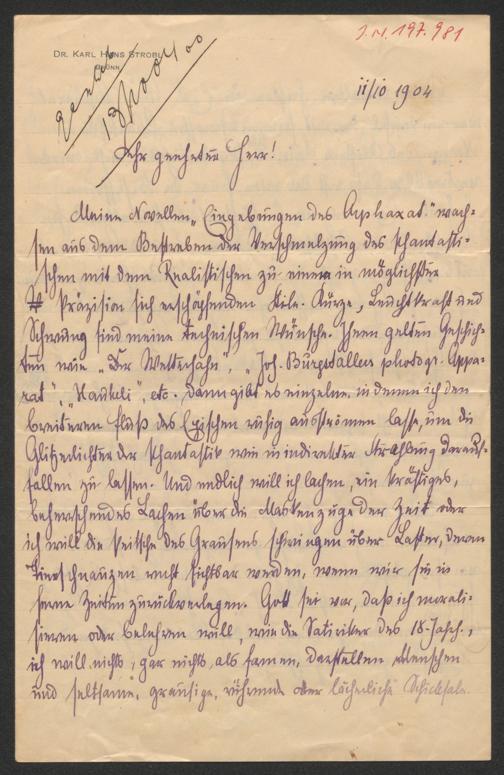 J.N. 197.981
DR. KARL HANS STROBL
BRÜNN
11/10 1904
Sehr geehrter Herr!
Meine Novellen „Eingebungen des Arphaxat" wach-
sen aus dem Bestreben der Verschmelzung des Phantasti-
schen mit dem Realistischen zu einem in möglichster
Präzision sich erschöpfenden Stile. Kürze, Leuchtkraft und
Schwung sind meine technischen Wünsche. Ihnen gelten Geschich-
ten wie „Der Wetterhahn", „Joh. Burgstallers photogr. Appa-
rat", „Haukeli", etc. dann gibt es einzelne, in denen ich den
breiteren Fluß des Epischen ruhig ausströmen lasse, um die
Glitzerlichter der Phantastik wie in indirekter Strahlung darauf
fallen zu lassen. Und endlich will ich lachen, ein kräftiges,
beherrschendes Lachen über die Maskenzüge der Zeit oder
ich will die Peitsche des Grausens schwingen über Laster, deren
Tierschnauzen recht sichtbar werden, wenn wir sie in
ferne Zeiten zurückverlegen. Gott sei vor, daß ich morali-
sieren oder belehren will, wie die Satiriker des 18. Jahrh.,
ich will nichts, gar nichts, als formen, darstellen Menschen
und seltsame, grausige, rührende oder lächerliche Schicksale.